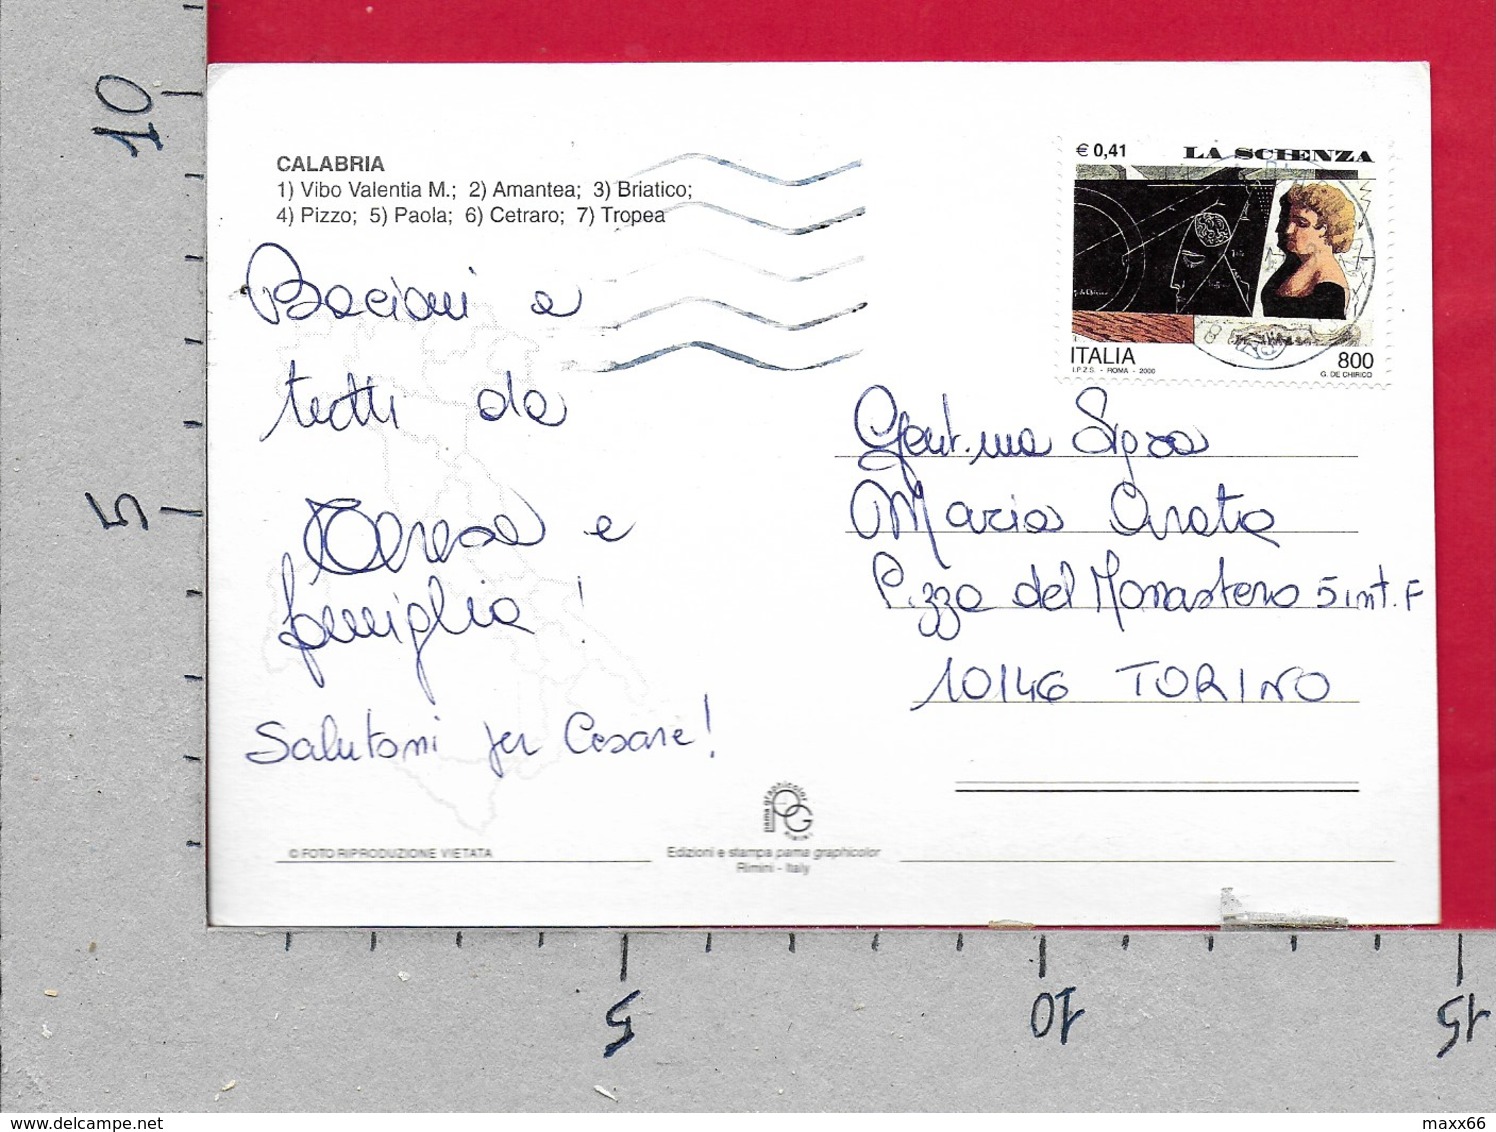 CALABRIA
1) Vibo Valentia M.; 2) Amantea; 3) Briatico;
4) Pizzo; 5) Paola; 6) Cetraro; 7) Tropea
€ 0,41 LA SCIENZA
ITALIA 800
I.P.Z.S. - ROMA - 2000 G. DE CHIRICO
Bacioni a
tutti da
Teresa e
famiglia!
Salutoni per Cesare!
Gent.ma Sig.ra
Maria Arata
P.zza del Monastero 5 int. F
10146 TORINO
© FOTO RIPRODUZIONE VIETATA
pama graphicolor
PG
RIMINI
Edizioni e stampa pama graphicolor
Rimini - Italy
10
5
5
10
15
www.delcampe.net
maxx66